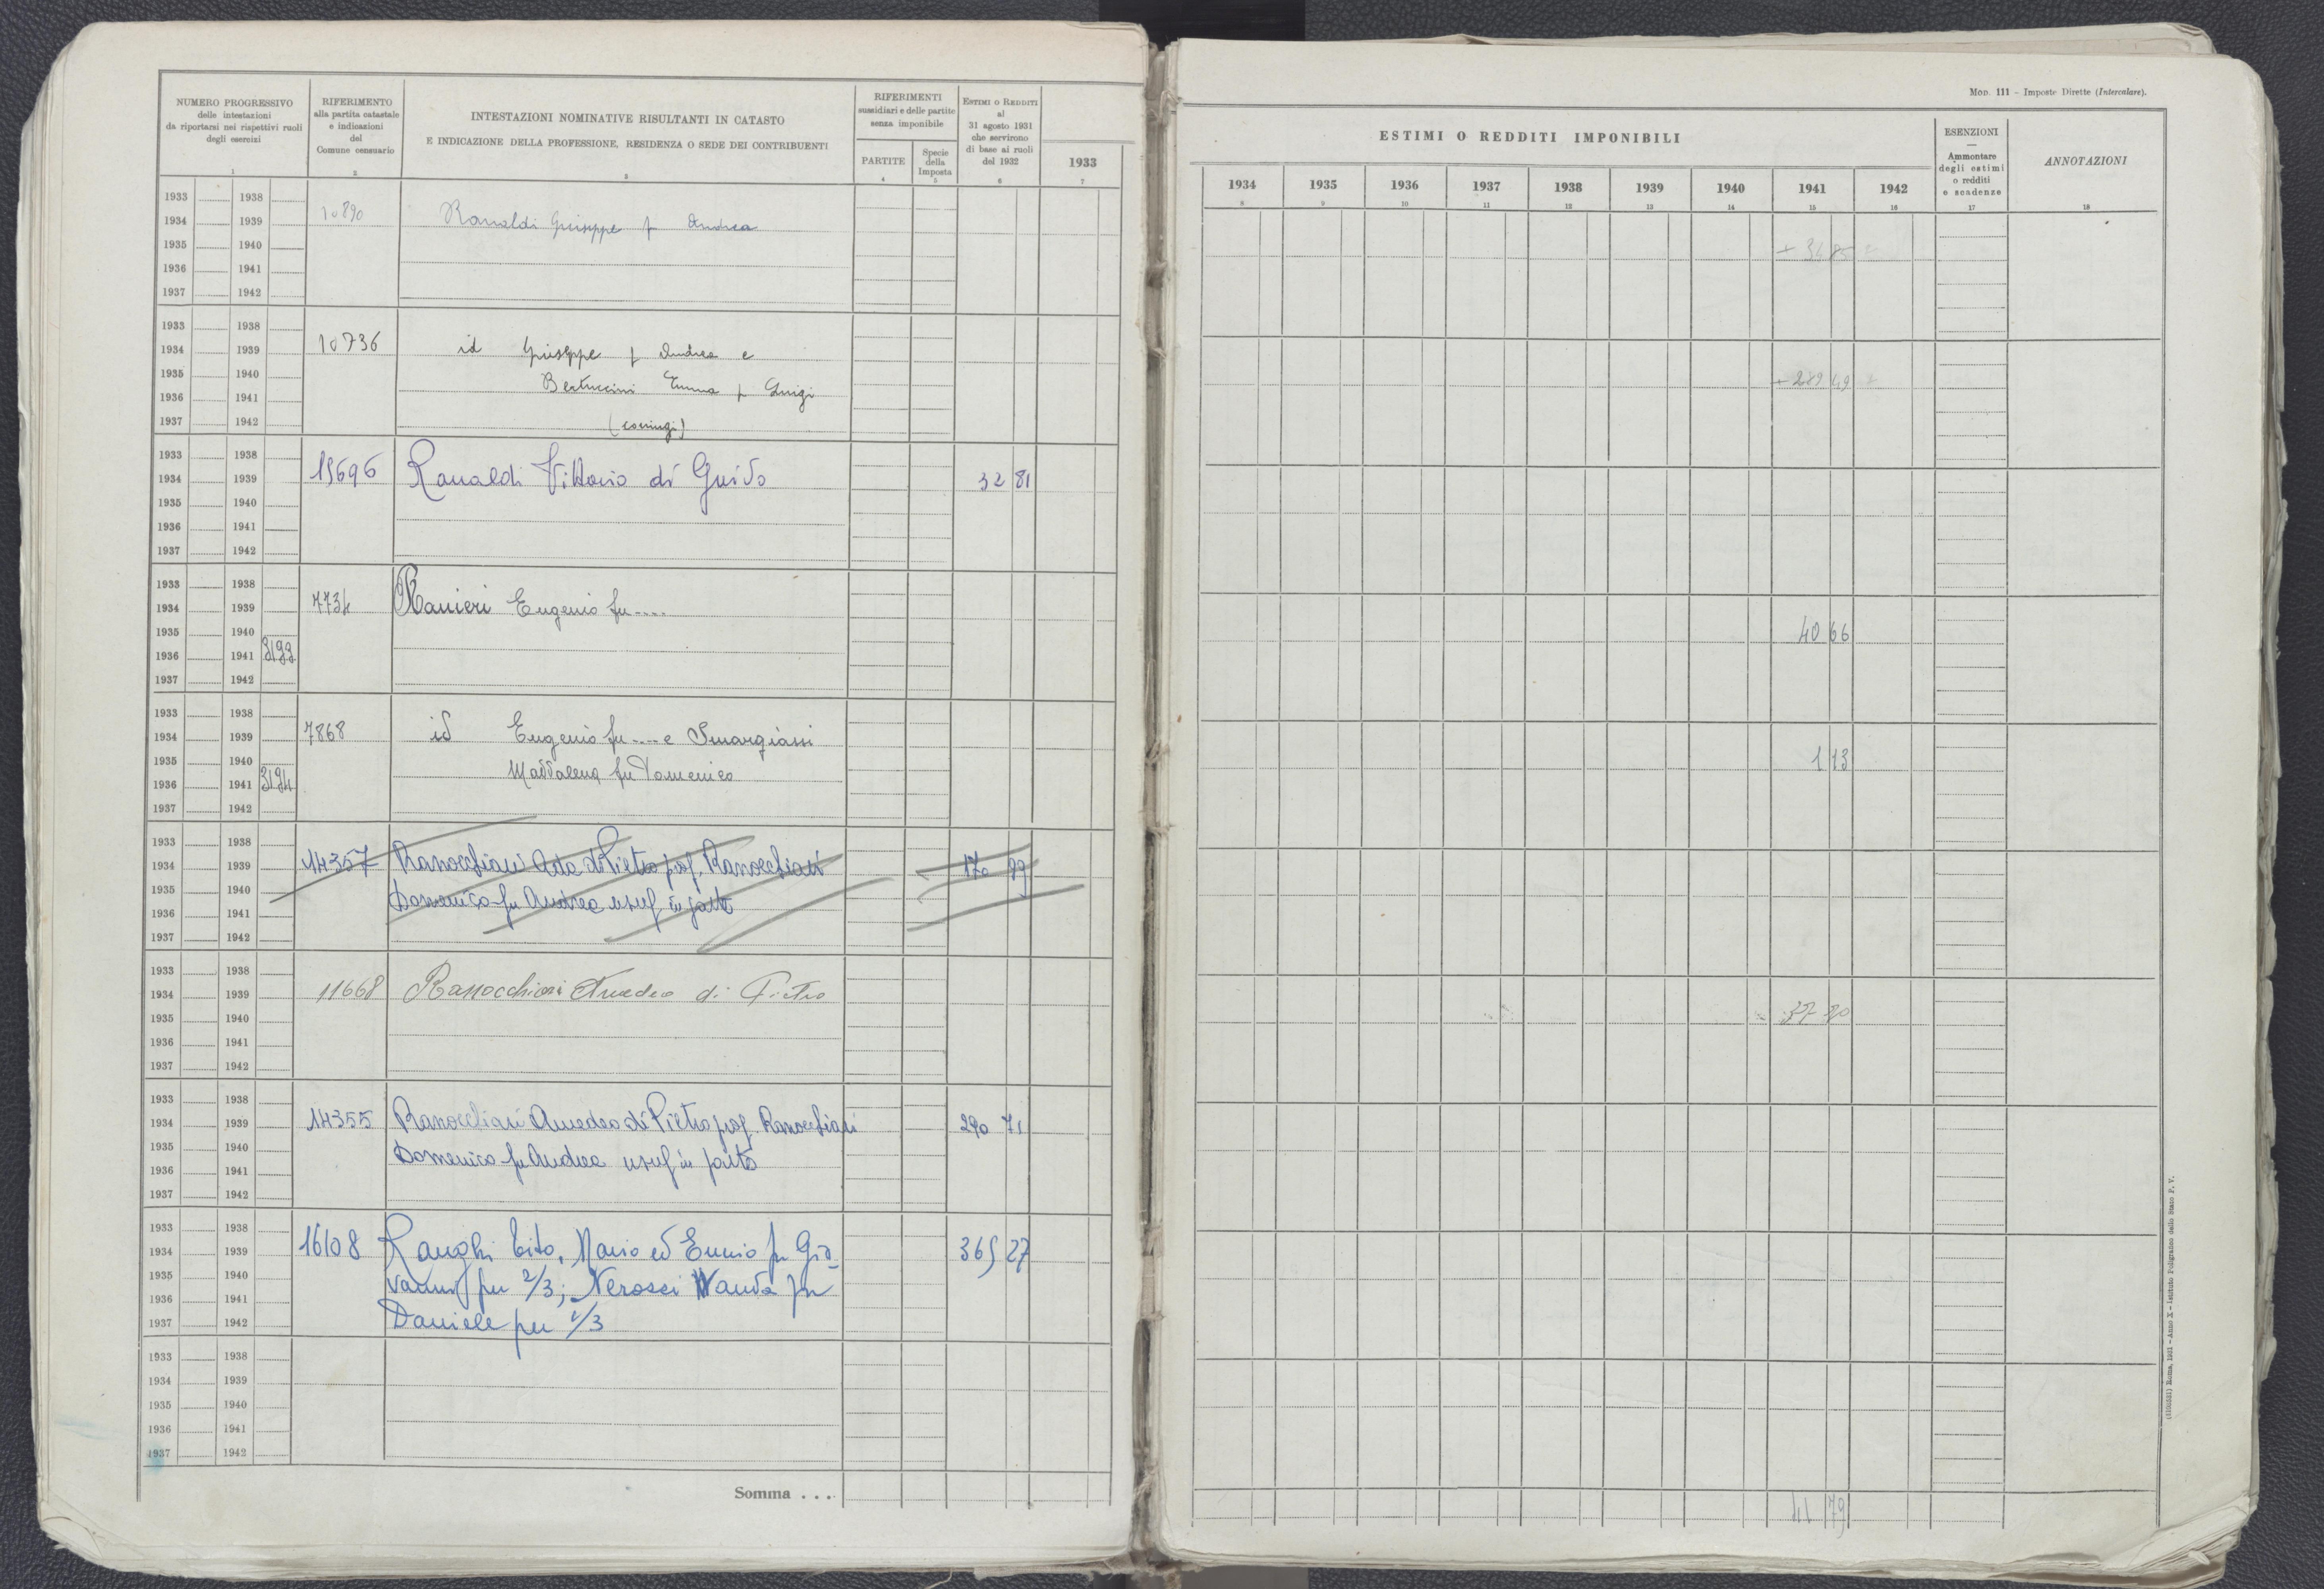 NUMERO PROGRESSIVO
delle intestazioni
da riportarsi nei rispettivi ruoli
degli esercizi
1
RIFERIMENTO
alla partita catastale
e indicazioni
del
Comune censuario
2
INTESTAZIONI NOMINATIVE RISULTANTI IN CATASTO
E INDICAZIONE DELLA PROFESSIONE, RESIDENZA O SEDE DEI CONTRIBUENTI
3
RIFERIMENTI
sussidiari e delle partite
senza imponibile
PARTITE
4
Specie
della
Imposta
5
ESTIMI O REDDITI
al
31 agosto 1931
che servirono
di base ai ruoli
del 1932
6
1933
7
1933 1938
1934 1939 10890 Ranaldi Giuseppe f Andrea
1935 1940
1936 1941
1937 1942
1933 1938
1934 1939 10736 id Giuseppe f Andrea e
1935 1940 Bertuccini Emma f Luigi
1936 1941
1937 1942 (coniugi)
1933 1938
1934 1939 15696 Ranaldi Vittorio di Guido 32 81
1935 1940
1936 1941
1937 1942
1933 1938
1934 1939 7734 Ranieri Eugenio fu ....
1935 1940
1936 1941 3193
1937 1942
1933 1938
1934 1939 7868 id Eugenio fu .... e Smargiassi
1935 1940 Maddalena fu Domenico
1936 1941 3194
1937 1942
1933 1938
1934 1939 14357 Ranocchiari Ada di Pietro prop. Ranocchiari 170 99
1935 1940 Domenico fu Andrea usuf in parte
1936 1941
1937 1942
1933 1938
1934 1939 11668 Ranocchiari Amedeo di Pietro
1935 1940
1936 1941
1937 1942
1933 1938
1934 1939 14355 Ranocchiari Amedeo di Pietro prop Ranocchiari 290 71
1935 1940 Domenico fu Andrea usuf in parte
1936 1941
1937 1942
1933 1938
1934 1939 16108 Ranghi Tito, Mario ed Ennio fu Gio- 365 27
1935 1940 vanni per 2/3; Nerossi Wanda fu
1936 1941
1937 1942 Daniele per 1/3
1933 1938
1934 1939
1935 1940
1936 1941
1937 1942
Somma . . .
Mod. 111 – Imposte Dirette (Intercalare).
ESTIMI O REDDITI IMPONIBILI
1934 1935 1936 1937 1938 1939 1940 1941 1942
8 9 10 11 12 13 14 15 16
ESENZIONI
—
Ammontare
degli estimi
o redditi
e scadenze
17
ANNOTAZIONI
18
+ 289 49
40 66
1 13
37 20
41 79
Roma, 1931 – Anno X – Istituto Poligrafico dello Stato P. V.